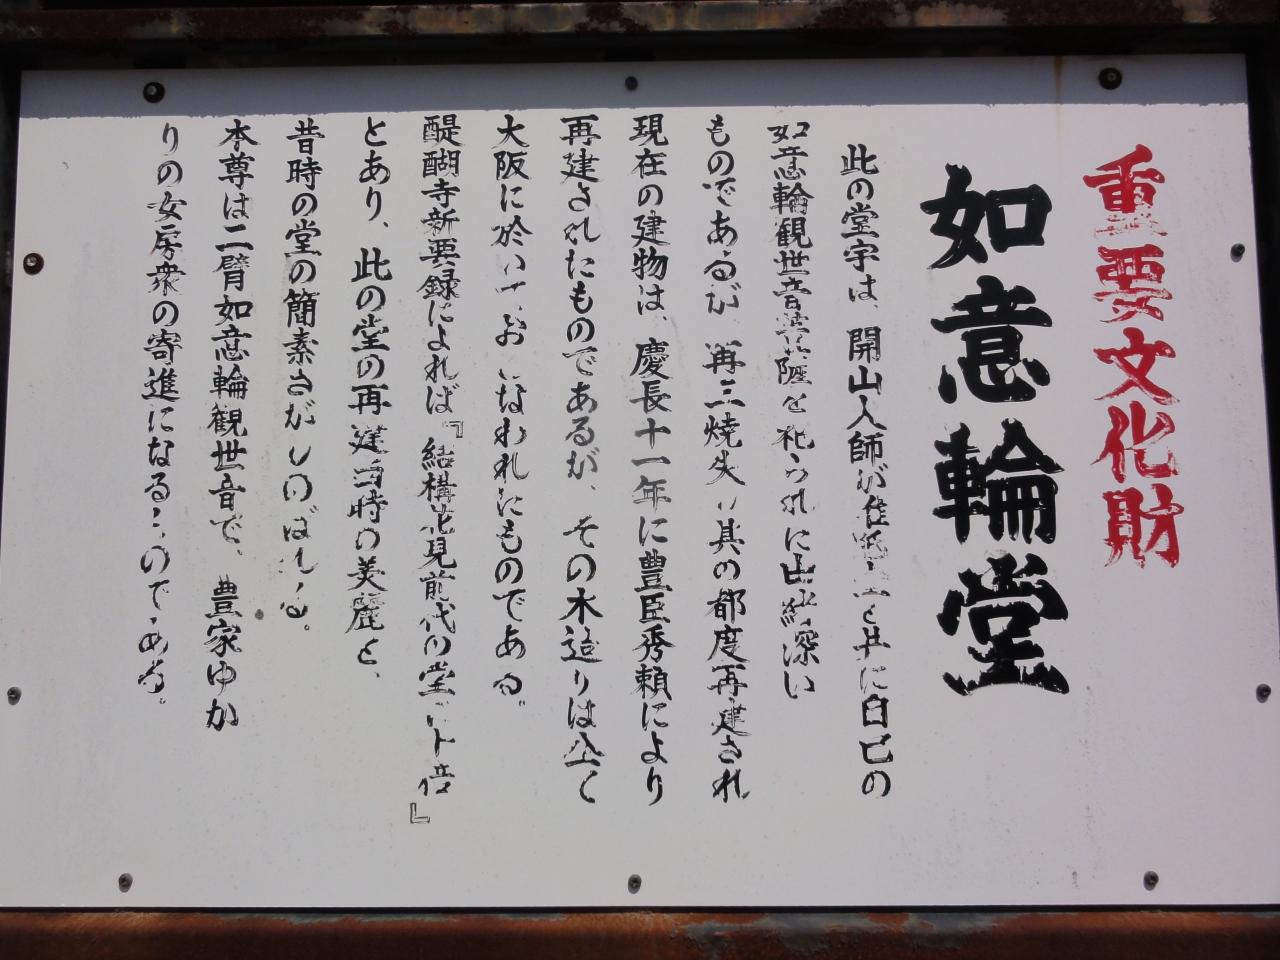 重要文化財
如意輪堂
此の堂宇は、開山大師が准胝堂と共に自己の
如意輪観世音菩薩を祀られた由緒深い
ものであるが、再三焼失し其の都度再建され
現在の建物は、慶長十一年に豊臣秀頼により
再建されたものであるが、その木造りは全く
大阪に於いておこなわれたものである。
醍醐寺新要録によれば『結構花見前代の堂に十倍』
とあり、此の堂の再建当時の美麗と、
昔時の堂の簡素さがしのばれる。
本尊は二臂如意輪観世音で、豊家ゆか
りの女房衆の寄進になるものである。